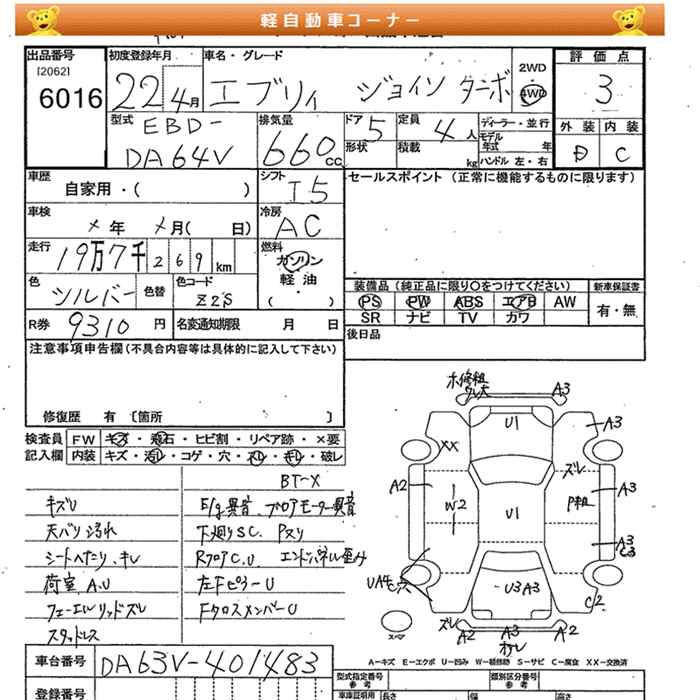 軽自動車コーナー
出品番号 初度登録年月 車名・グレード 2WD 評価点
[2062]
6016 22 4月 エブリィ ジョイン ターボ 4WD 3
型式 EBD- 排気量 ドア 5 定員 4人 ディーラー・並行 外装 内装
モデル
年式 年
DA64V 660cc 形状 積載 kg ハンドル 左・右 D C
車歴 シフト セールスポイント (正常に機能するものに限ります)
自家用・( ) I5
車検 冷房
メ年 メ月( 日) AC
走行 燃料
19万7千269km ガソリン
軽油
色 色替 色コード ( ・ ) 装備品 (純正品に限り○をつけてください) 新車保証書
シルバー Z2S PS PW ABS エアB AW 有・無
R券 9310円 名変通知期限 月 日 SR ナビ TV カワ
注意事項申告欄(不具合内容等は具体的に記入して下さい) 後日品
修復歴 有 〔箇所 〕
検査員 FW キズ・飛石・ヒビ割・リペア跡・×要
記入欄 内装 キズ・汚レ・コゲ・穴・スレ・キレ・破レ
BT-X
キズU E/g異音、ブロアモーター異音
天バリ汚れ 下廻りSC、Pスリ
シートへたり、キレ RフロアC.U エンドパネル歪み
荷室A.U 左FピラーU
フューエルリッドズレ FクロスメンバーU
スタッドレス
A3
U1
A3
XX
ズレ
A2
W2
U1
P粗
A3
A3
C3
U3A3
C2
スペア
ズレ
A2
A3
A2
A-キズ E-エクボ U-凹み W-補修跡 S-サビ C-腐食 XX-交換済
車台番号 DA63V-401483
型式指定番号 類別区分番号
参考 参考
登録番号 車庫証明用 長さ 幅 高さ